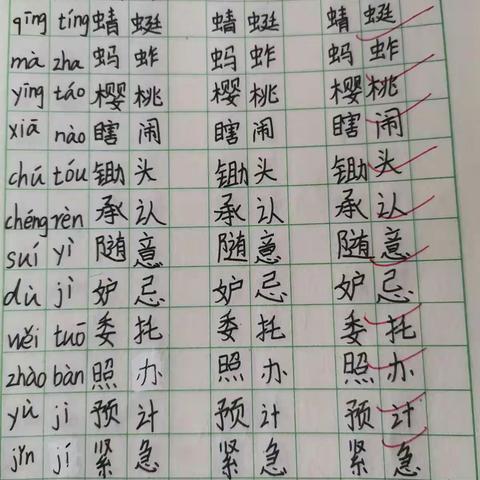 qīng tíng 蜻蜓 蜻蜓 蜻蜓
mà zha 蚂蚱 蚂蚱 蚂蚱
yīng táo 樱桃 樱桃 樱桃
xiā nào 瞎闹 瞎闹 瞎闹
chú tóu 锄头 锄头 锄头
chéng rèn 承认 承认 承认
suí yì 随意 随意 随意
dù jì 妒忌 妒忌 妒忌
wěi tuō 委托 委托 委托
zhào bàn 照办 照办 照办
yù jì 预计 预计 预计
jǐn jí 紧急 紧急 紧急